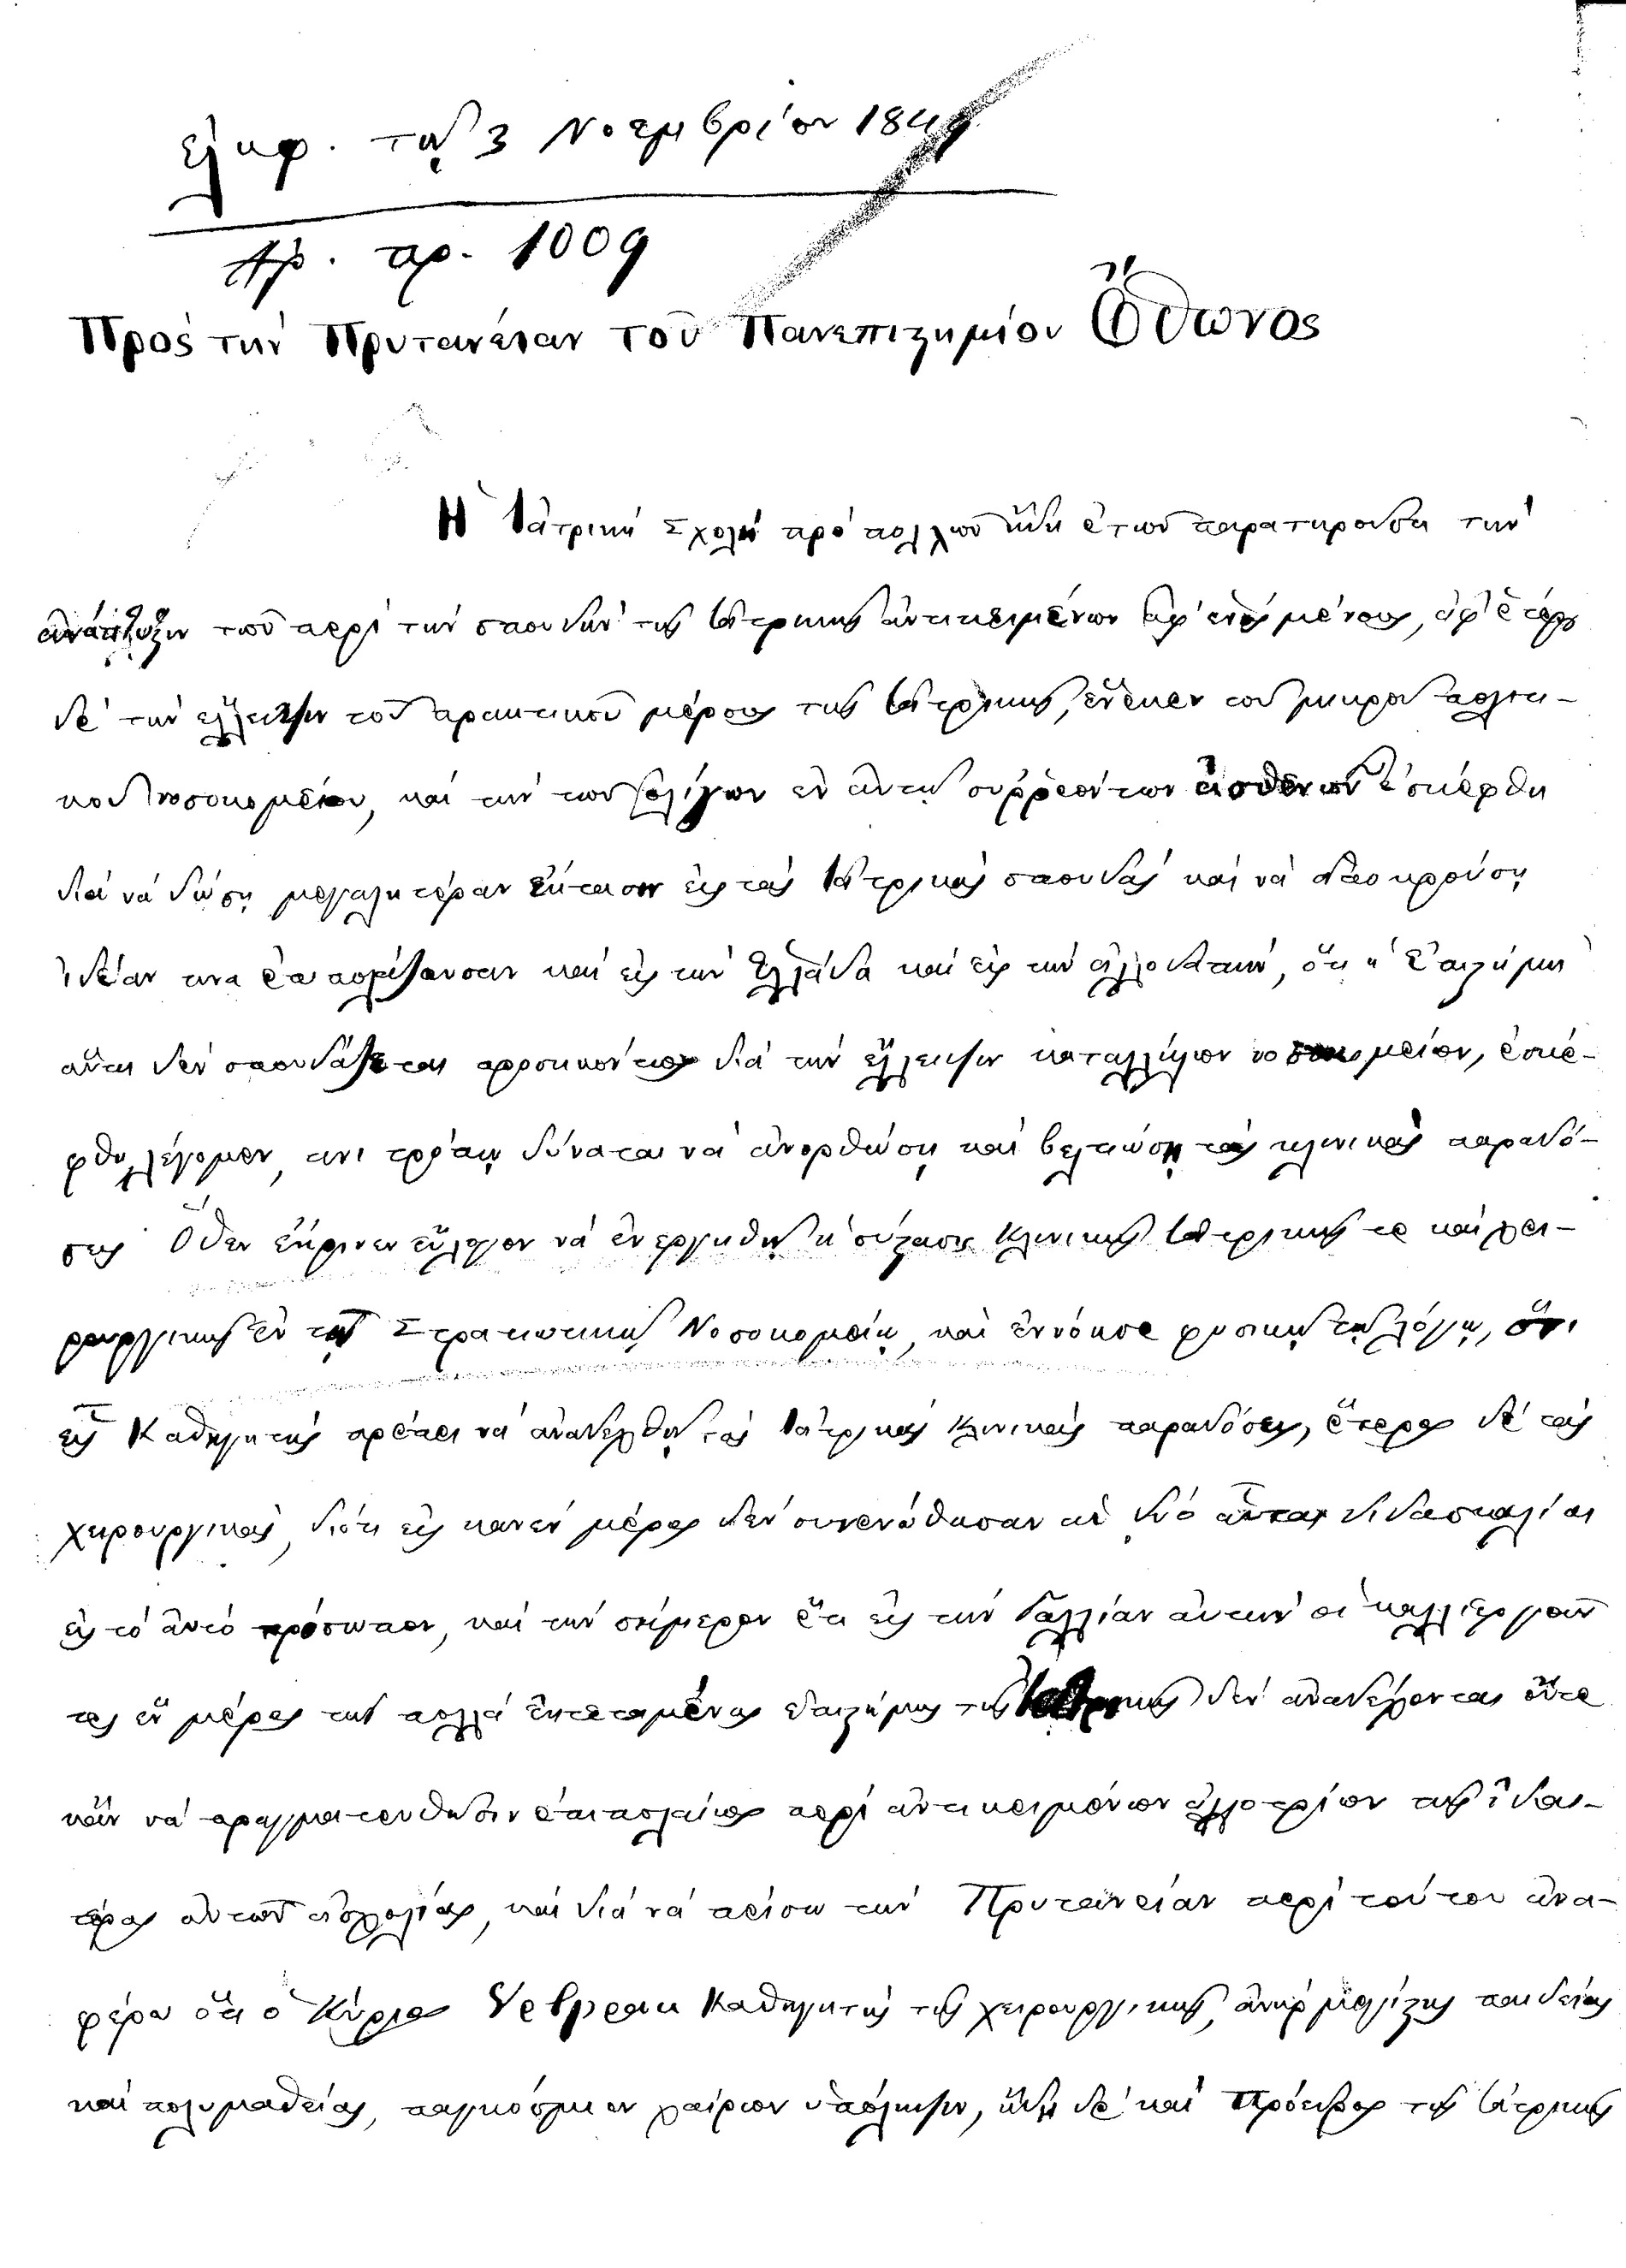 εἰσηρ. τῇ 3 Νοεμβρίου 1849
Ἀρ. πρ. 1009
Πρὸς τὴν Πρυτανείαν τοῦ Πανεπιστημίου Ὄθωνος
Ἡ Ἰατρικὴ Σχολὴ πρὸ πολλῶν ἤδη ἐτῶν παρατηροῦσα τὴν
ἀνάπτυξιν τῶν περὶ τὴν σπουδὴν τῆς Ἰατρικῆς ἀντικειμένων ἀφ' ἑνὸς μέρους, ἀφ' ἑτέρου
δὲ τὴν ἔλλειψιν τοῦ πρακτικοῦ μέρους τῆς Ἰατρικῆς, ἕνεκεν τοῦ μικροῦ πολιτι-
κοῦ νοσοκομείου, καὶ τὴν τῶν ὀλίγων ἐν αὐτῷ συῤῥεόντων ἀσθενῶν ἐσκέφθη
διὰ νὰ δώσῃ μεγαλητέραν ἔκτασιν εἰς τὰς Ἰατρικὰς σπουδὰς καὶ νὰ ἀποκρούσῃ
ἰδέαν τινα ἐπιπολάζουσαν καὶ εἰς τὴν Ἑλλάδα καὶ εἰς τὴν ἀλλοδαπὴν, ὅτι ἡ Ἐπιστήμη
αὕτη δὲν σπουδάζεται προσηκόντως διὰ τὴν ἔλλειψιν καταλλήλων νοσοκομείων, ἐσκέ-
φθη, λέγομεν, τινι τρόπῳ δύναται νὰ ἀνορθώσῃ καὶ βελτιώσῃ τὰς κλινικὰς παραδό-
σεις. Ὅθεν ἔκρινεν εὔλογον νὰ ἐνεργηθῇ ἡ σύστασις Κλινικῆς Ἰατρικῆς τε καὶ χει-
ρουργικῆς ἐν τῷ Στρατιωτικῷ Νοσοκομείῳ, καὶ ἐννόησε φυσικῷ τῷ λόγῳ, ὅτι
εἷς Καθηγητὴς πρέπει νὰ ἀναδεχθῇ τὰς Ἰατρικὰς Κλινικὰς παραδόσεις, ἕτερος δὲ τὰς
χειρουργικὰς, διότι εἰς κανὲν μέρος δὲν συνενώθησαν αἱ δύο αὗται διδασκαλίαι
εἰς τὸ αὐτὸ πρόσωπον, καὶ τὴν σήμερον ἔτι εἰς τὴν Γαλλίαν αὐτὴν οἱ καλλιεργοῦν
τες ἓν μέρος τῆς πολλὰ ἐκτεταμένης ἐπιστήμης τῆς Ἰατρικῆς δὲν ἀναδέχονται οὔτε
κἂν νὰ πραγματευθῶσιν ἐπιπολαίως περὶ ἀντικειμένων ἀλλοτρίων τῆς ἰδιαι-
τέρας αὐτῶν ἀσχολίας, καὶ διὰ νὰ πείσω τὴν Πρυτανείαν περὶ τούτου ἀνα-
φέρω ὅτι ὁ Κύριος Velpeau Καθηγητὴς τῆς χειρουργικῆς, ἀνὴρ μεγίστης παιδείας
καὶ πολυμαθείας, παγκόσμιον χαίρων ὑπόληψιν, ἤδη δὲ καὶ Πρόεδρος τῆς Ἰατρικῆς